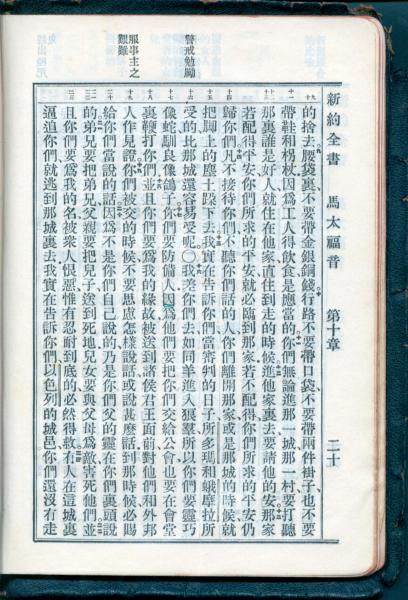 新約全書　馬太福音　第十章　二十
警戒勉勵
服事主之
艱難
的捨去腰袋裏不要帶金銀銅錢行路不要帶口袋不要帶兩件褂子也不要
帶鞋和柺杖因爲工人得飲食是應當的你們無論進那一城那一村要打聽
那裏誰是好人就住在他家直住到走的時候進他家裏去要請他的安那家
若配得平安你們所求的平安就必臨到那家若不配得你們所求的平安仍
歸你們凡不接待你們不聽你們話的人你們離開那家或是那城的時候就
把脚上的塵土跺下去我實在告訴你們當審判的日子所多瑪和蛾摩拉所
受的比那城還容易受呢〇我差你們去如同羊進入狼羣所以你們要靈巧
像蛇馴良像鴿子你們要防備人因爲他們要把你們交給公會也要在會堂
裏鞭打你們並且你們要爲我的緣故被送到諸侯君王面前對他們和外邦
人作見證你們被交的時候不要思慮怎樣說話或說甚麼話到那時候必賜
給你們當說的話因爲不是你們自己說的乃是你們父的靈在你們裏頭說
的弟兄要把弟兄父親要把兒子送到死地兒女要與父母爲敵害死他們並
且你們要爲我的名被衆人恨惡惟有忍耐到底的必然得救有人在這城裏
逼迫你們就逃到那城裏去我實在告訴你們以色列的城邑你們還沒有走